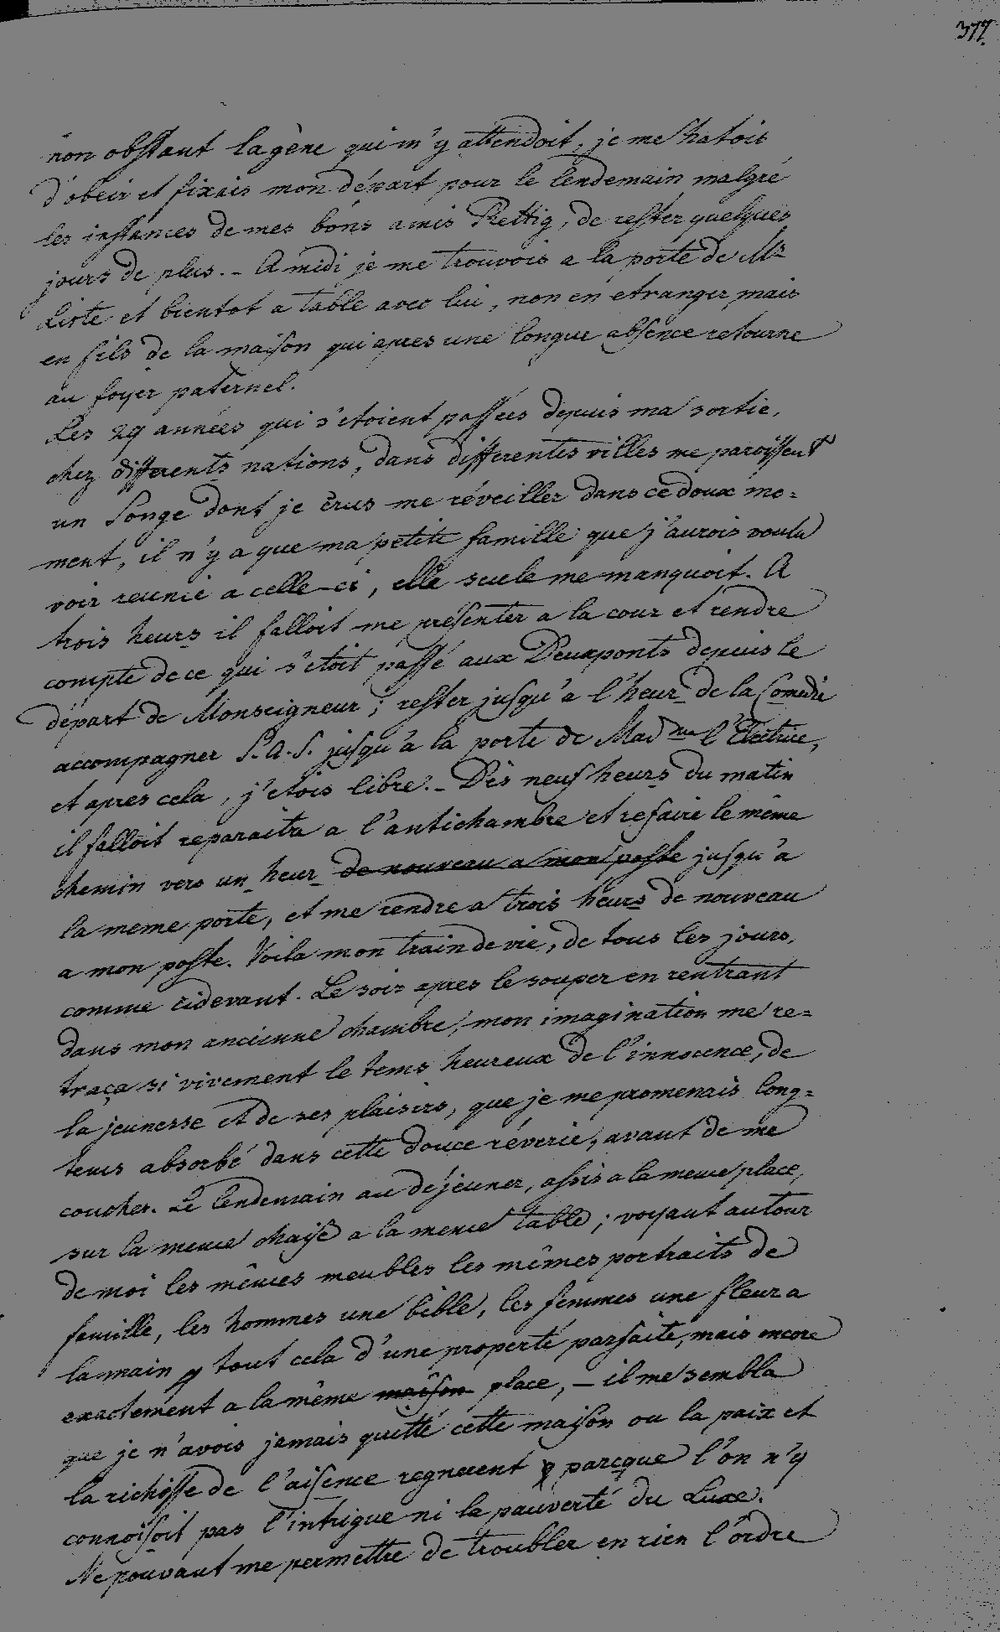 377.
non obstant la gène qui m'y attendoit, je me hatois
d'obéir et fixais mon départ pour le lendemain malgré
les instances de mes bons amis Rettig, de rester quelques
jours de plus. - A midi je me trouvois a la porte de Mr
Liste et bientot a table avec lui, non en etranger mais
en fils de la maison qui apres une longue absence retourne
au foyer paternel.
Les 29 années qui s'etoient passées depuis ma sortie,
chez differents nations, dans differentes villes me paroissent
un songe dont je crus me réveiller dans ce doux mo=
ment, il n'y a que ma petite famille que j'aurois voulu
voir reunie a celle-ci, elle seule me manquoit. A
trois heurs il falloit me présenter a la cour et rendre
compte de ce qui s'etoit passé aux Deuxponts depuis le
départ de Monseigneur; rester jusqu'a l'heur de la Comedie
accompagner S.A.S. jusqu'à la porte de Madme l'Electrice,
et apres cela, j'etois libre. - Dès neuf heurs du matin
il falloit reparaitre a l'antichambre et refaire le même
chemin vers un heur de nouveau a mon poste jusqu'a
la meme porte, et me rendre a trois heurs de nouveau
a mon poste. Voila mon train de vie, de tous les jours,
comme cidevant. Le soir apres le souper en rentrant
dans mon ancienne chambre, mon imagination me re=
traça si vivement le tems heureux de l'innocence, de
la jeunesse et de ses plaisirs, que je me promenais long=
tems absorbé dans cette douce réverie, avant de me
coucher. Le lendemain au déjeuner, assis a la meme place,
sur la meme chaise a la meme table; voyant autour
de moi les mêmes meubles les mêmes portraits de
famille, les hommes une bible, les femmes une fleur a
la main, tout cela d'une properté parfaite, mais encore
exactement a la même maison place, - il me sembla
que je n'avois jamais quitté cette maison ou la paix et
la richesse de l'aisence regnerent parcque l'on n'y
connoisoit pas l'intrigue ni la pauverté du Luxe.
Ne pouvant me permettre de troubler en rien l'ordre